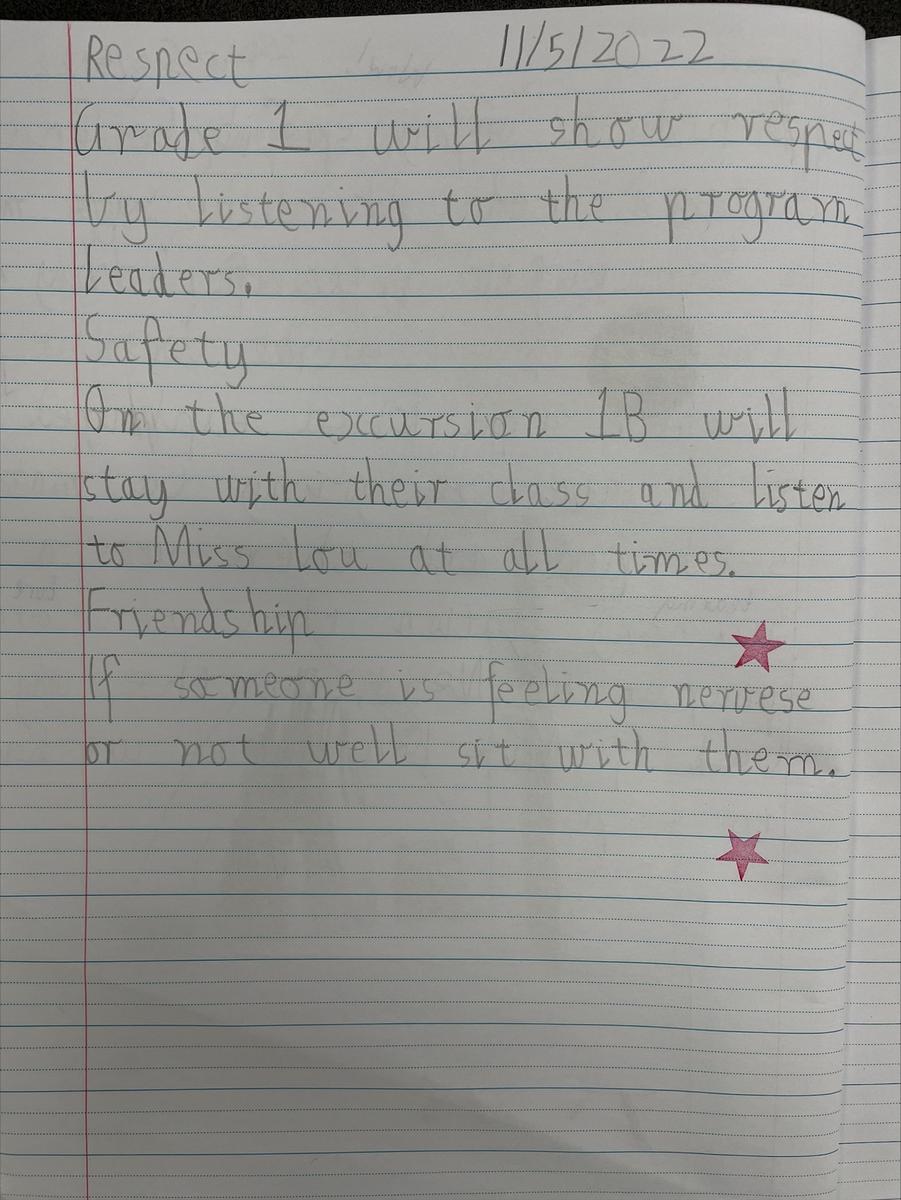 Respect 11/5/2022
Grade 1 will show respect
by listening to the program
Leaders.
Safety
On the excursion 1B will
stay with their class and listen
to Miss Lou at all times.
Friendship
If someone is feeling nervese
or not well sit with them.